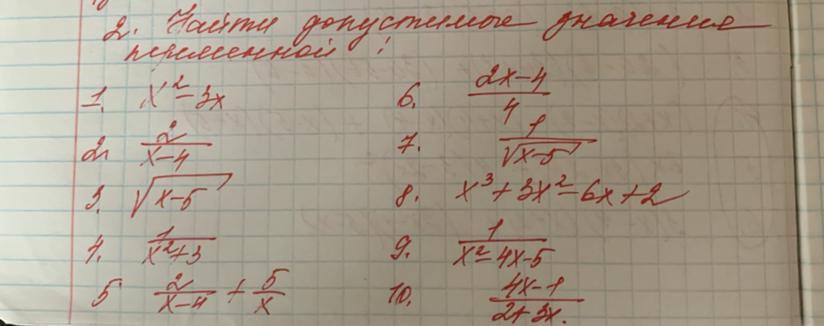 2. Найти допустимые значения
переменной :
1. x² - 3x
2. 2/(x-4)
3. √(x-5)
4. 1/(x²+3)
5 2/(x-4) + 5/x
6. (2x-4)/4
7. 1/√(x-5)
8. x³+3x²-6x+2
9. 1/(x²-4x-5)
10. (4x-1)/(2+3x).